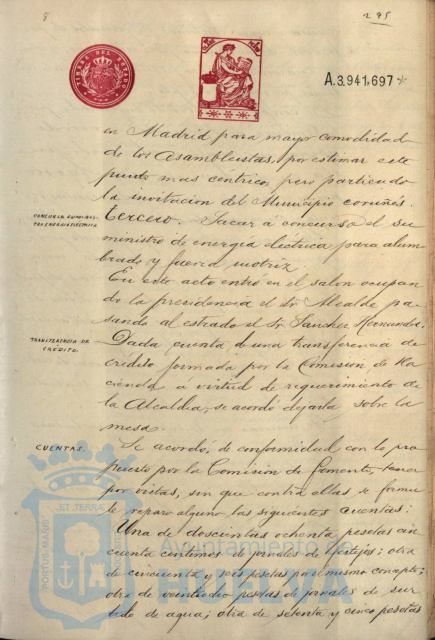 295
TIMBRE DEL ESTADO
A.3.941.697*
en Madrid para mayor comodidad
de los Asambleistas, por estimar este
punto mas céntrico, pero partiendo
la invitacion del Municipio coruñés.
CONCURSO SUMINIS-
TRO ENERGIA ELÉCTRICA
Tercero. Sacar á concurso el su
ministro de energia eléctrica para alum
brado y fuerza motriz
En este acto entró en el salon ocupan
do la presidencia el Sr Alcalde pa
sando al estrado el Sr Sanchez Hernandez.
TRANSFERENCIA DE
CRÉDITO.
Dada cuenta de una transferencia de
crédito formada por la Comision de Ha
cienda á virtud de requerimiento de
la Alcaldia, se acordó dejarla sobre la
mesa.
CUENTAS.
Se acordó, de conformidad con lo pro
puesto por la Comision de Fomento, tener
por vistas, sin que contra ellas se formu
le reparo alguno las siguientes cuentas:
Una de doscientas ochenta pesetas cin
cuenta centimos de jornales de festejos; otra
de cincuenta y seis pesetas por el mismo concepto;
otra de veintiocho pesetas de jornales de sur
tido de agua; otra de setenta y cinco pesetas
ET TERRA
PORTUS MARIS
Ayuntamiento de